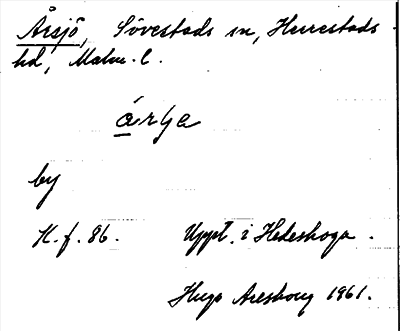 Årsjö, Sövestads sn, Herrestads
hd, Malm. l.
årʃa
by
K. f. 86. Uppt. i Hedeskoga.
Hugo Areskoug 1961.